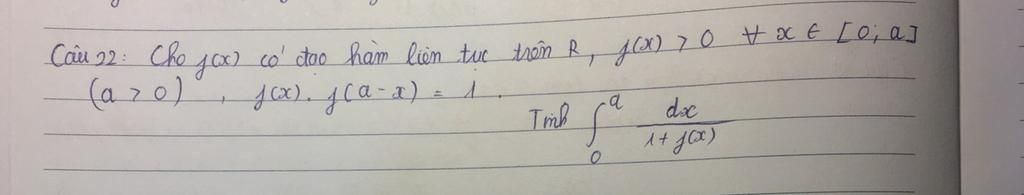 Câu 22: Cho f(x) có đạo hàm liên tục trên R, f(x) > 0 ∀ x ∈ [0; a]
(a > 0), f(x). f(a-x) = 1.
Tính ∫₀ᵃ dx / (1 + f(x))